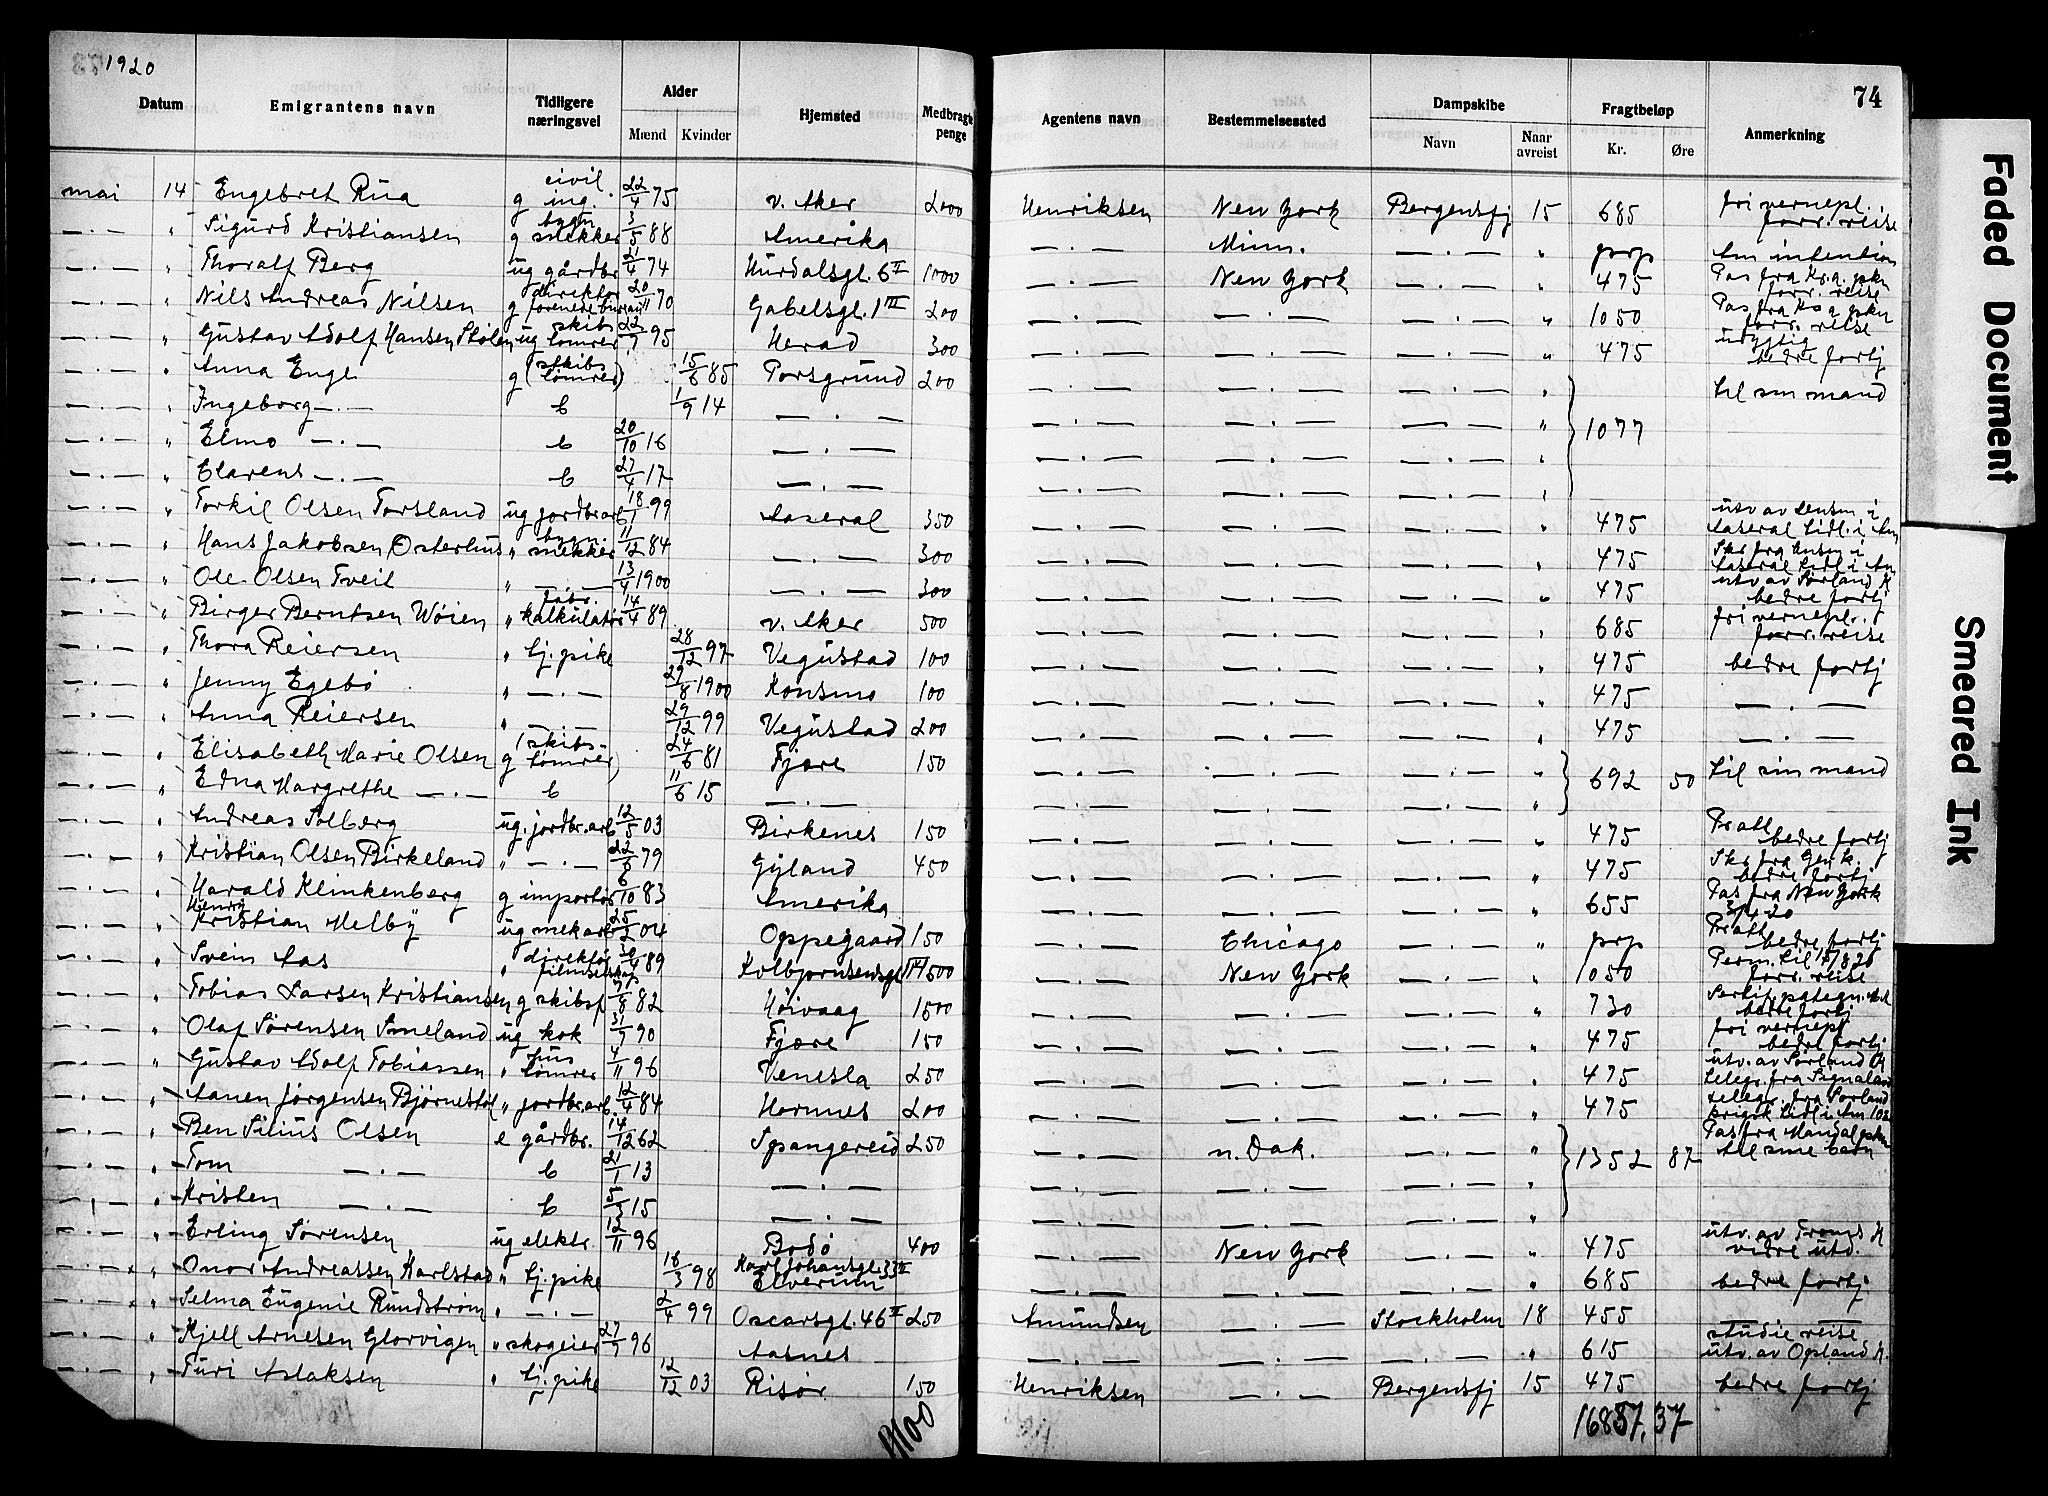 1920
74
Datum Emigrantens navn Tidligere næringsvei Alder Mænd Kvinder Hjemsted Medbragte penge Agentens navn Bestemmelsessted Dampskibe Navn Naar avreist Fragtbeløp Kr. Øre Anmerkning
mai 14 Engebret Rua g civil ing. 22/4 75 v. Aker 2000 Henriksen New York Bergensfj 15 685 fri vernepl. forr. reise
— . — " Sigurd Kristiansen g bygn snekker 3/5 88 Amerika — . — Minn. — . — " prp Am intention
— . — " Thoralf Berg ug gårdbr. 21/4 74 Hurdalsgt. 6 II 1000 — . — New York — . — " 475 Pas fra Kr.a. pkn forr. reise
— . — " Nils Andreas Nilsen g direktør forenede bureau 20/11 70 Gabelsgt. 1 III 200 — . — — . — — . — " 1050 Pas fra Kr a pkn forr. reise
— . — " Gustav Adolf Hansen Stølen ug skibs tømrer 22/7 95 Herad 300 — . — — . — — . — " 475 udygtig bedre fortj
— . — " Anna Enge g (skibs tømrer) 15/6 85 Porsgrund 200 — . — — . — — . — " 1077 til sin mand
— . — " Ingeborg — . — b 1/9 14 — . — — . — — . — — . — "
— . — " Elmo — . — b 20/10 16 — . — — . — — . — — . — "
— . — " Clarens — . — b 27/4 17 — . — — . — — . — — . — "
— . — " Torkil Olsen Torsland ug jordbr.arb 18/1 99 Aaseral 350 — . — — . — — . — " 475 utv av lensm i Aaseral tidl. i Am
— . — " Hans Jakobsen Osterhus " bygn. snekker 11/12 84 — . — 300 — . — — . — — . — " 475 Skr fra lensm i Aaseral tidl i Am
— . — " Ole Olsen Tveit " — . — 13/4 1900 — . — 300 — . — — . — — . — " 475 utv. av Sørland K bedre fortj
— . — " Birger Berntsen Wøien " fabr. kalkulatør 14/4 89 v. Aker 500 — . — — . — — . — " 685 fri vernepl. forr. reise
— . — " Thora Reiersen " tj. pike 28/12 97 Vegusdad 100 — . — — . — — . — " 475 bedre fortj
— . — " Jenny Egebø " — . — 27/8 1900 Konsmo 100 — . — — . — — . — " 475 — . —
— . — " Anna Reiersen " — . — 29/12 99 Vegustad 200 — . — — . — — . — " 475 — . —
— . — " Elisabeth Marie Olsen g (skibs- tømrer) 24/6 81 Fjære 150 — . — — . — — . — " 692 50 til sin mand
— . — " Edna Margrethe — . — b 11/6 15 — . — — . — — . — — . — "
— . — " Andreas Solberg ug. jordbr.arb 12/5 03 Birkenes 150 — . — — . — — . — " 475 Pratt bedre fortj
— . — " Kristian Olsen Birkeland " — . — 22/6 79 Gyland 450 — . — — . — — . — " 475 Skr fra Gen.k. bedre fortj
— . — " Harald Klinkenberg g importør 6/10 83 Amerika — . — — . — — . — " 655 Pas fra New York 3/4 20
— . — " Henry Kristian Melby ug mek arb 25/2 04 Oppegaard 150 — . — Chicago — . — " prp Pratt bedre fortj
— . — " Svein Aas " direktør filmselskap 89 Kolbjørnsensgt 14 1500 — . — New York — . — " 1050 Perm. til 1/8 20 forr. reise
— . — " Tobias Larsen Kristiansen g skibsf 82 Høivaag 1500 — . — — . — — . — " 730 bedre fortj
— . — " Olaf Sørensen Smeland ug kok 31/7 90 Fjære 150 — . — — . — — . — " 475 fri vernepl bedre fortj
— . — " Gustav Adolf Tobiassen " hus tømrer 4/11 96 Venesla 250 — . — — . — — . — " 475 utv. av Sørland K telegr. fra
— . — " Aanen Jørgensen Bjørnestøl " jordbr.arb. 12/4 84 Hornnes 200 — . — — . — — . — " 475 telegr. fra Sørland krigsk tidl i Am
— . — " Ben Silius Olsen e gårdbr. 14/12 62 Spangereid 250 — . — n. Dak. — . — " 1352 87 Pas fra Mandal pkn til sine barn
— . — " Tom — . — b 21/1 13 — . — — . — — . — — . — "
— . — " Kristen — . — b 5/3 15 — . — — . — — . — — . — "
— . — " Erling Sørensen ug elektr. 12/11 96 Bodø 400 — . — New York — . — " 475 utv. av Troms K vidre utd.
— . — x " Onor Andreassen Karlstad " tj. pike 16/3 98 Karl Johansgt. 33 II Elverum — . — — . — — . — " 685 bedre fortj.
— . — x " Selma Eugenie Rundstrøm " — . — 2/4 99 Oscarsgt. 46 II 250 Amundsen — . — Stockholm 18 455
— . — " Kjell Arnesen Glorvigen " skogeier 27/7 96 Aasnes — . — — . — — . — " 615 studie reise utv. av Opland K.
— . — " Turi Aslaksen " tj. pike 12/12 03 Risør 150 Henriksen — . — Bergensfj 15 475 bedre fortj
16857,37
Faded Document
Smeared Ink